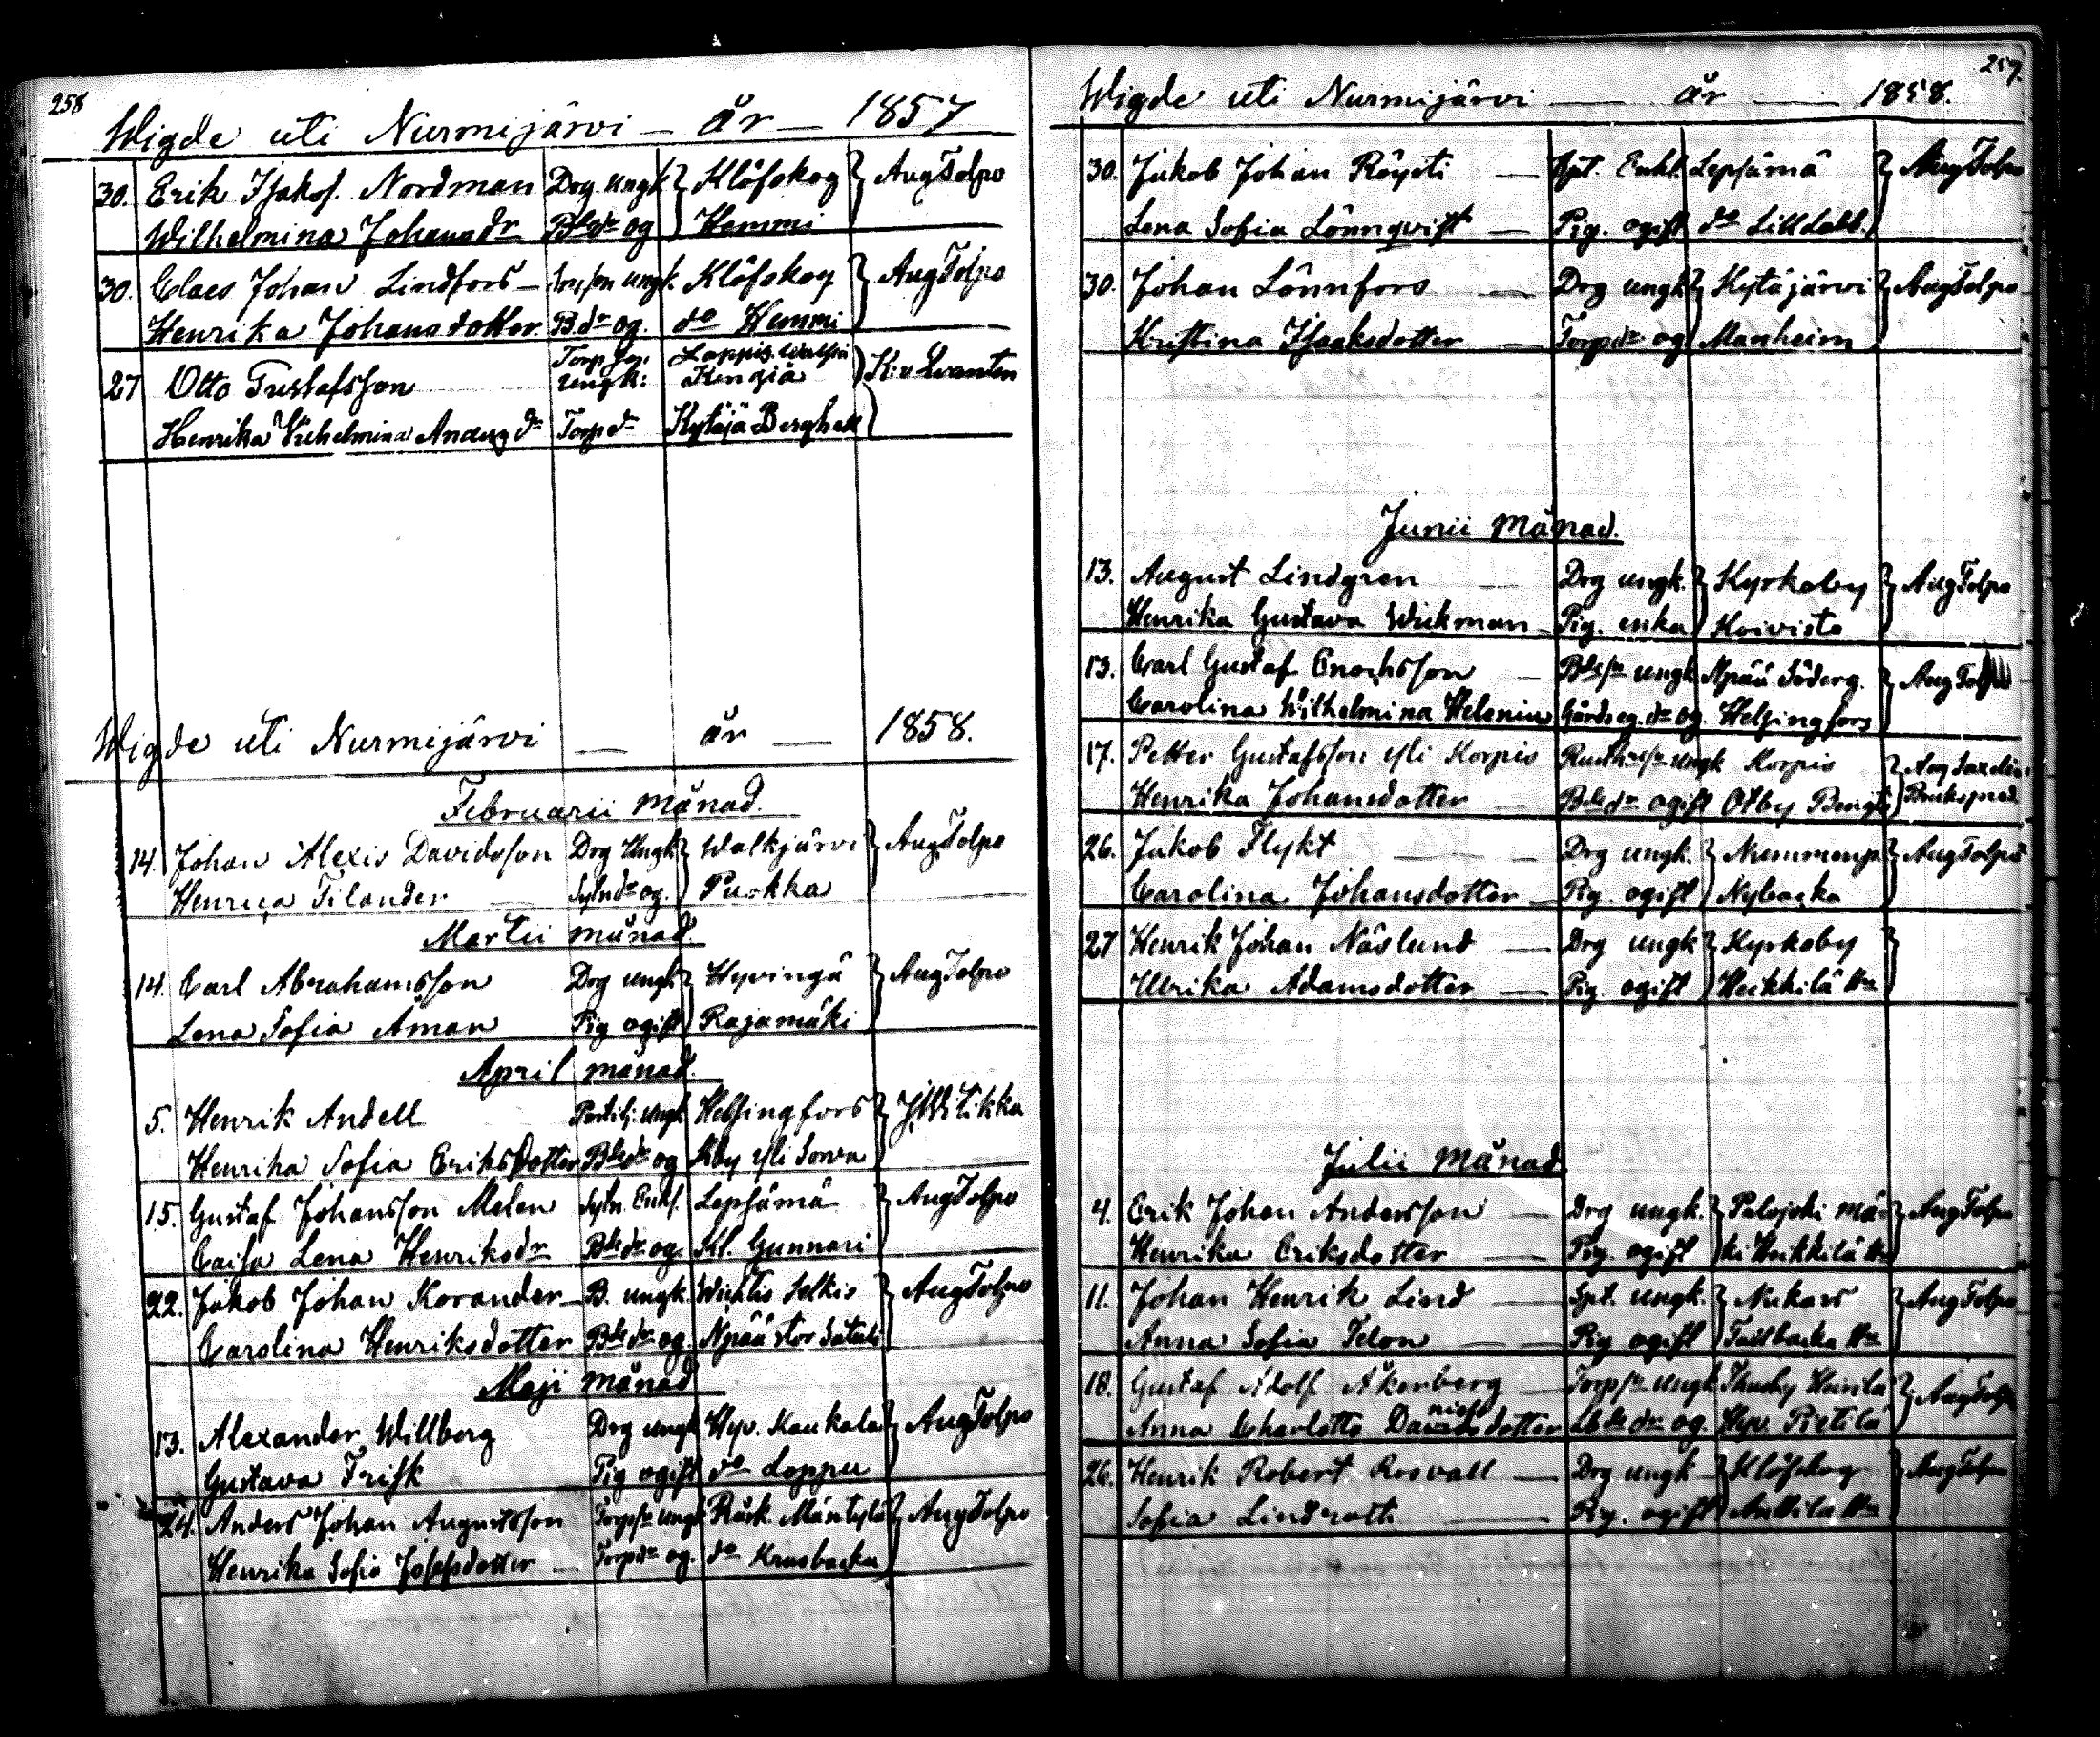 258
Wigde uti Nurmijärvi — år — 1857
30. Erik Isaksf. Nordman Drg ungk } Klöfskog } Aug Tolpo
Wilhelmina Johansdr Bdedr og } Hemmi
30. Claes Johan Lindfors — ungk. Klöfskog } Aug Tolpo
Henrika Johansdotter. B.dr og. do Hemmi
27 Otto Gustafsson Torp ungk: Loppis } K: v Qvanten
Henrika Vilhelmina Anders dr Torp dr Kytäjä Berghell
Wigde uti Nurmijärvi — år — 1858.
Februarii månad.
14. Johan Alexis Davidsson Drg Ungk } Walkjärvi } Aug Tolpo
Henrica Tilander — Sytn dr og. } Puckka
Martii månad.
14. Carl Abrahamsson Drg ungk } Hyvingä } Aug Tolpo
Lena Sofia Åman Pig ogift } Rajamäki
April månad.
5. Henrik Andell ungk Helsingfors } Likka
Henrika Sofia Eriksdotter Bdedr og Kby yli Sorva
15. Gustaf Johansson Melen Sytn. Enkl. Lepsämä } Aug Tolpo
Caisa Lena Henriksdr Bdedr og. Kl. Gunnari
22. Jakob Johan Korander — B. ungk. Wichtis Selkis } Aug Tolpo
Carolina Henriksdotter Bdedr og. Npää stor
Maji månad
13. Alexander Willberg Drg ungk Hyv. Kaukala } Aug Tolpo
Gustava Frisk Pig ogift do Loppu
24. Anders Johan Augustsson Torpsn ungk Råsk. Mäntylä } Aug Tolpo
Henrika Sofia Josefsdotter — Torpdr og. do Krusbacka
259.
Wigde uti Nurmijärvi — år — 1858.
30. Jakob Johan Röysti — Spt. Enkl. Lepsämä } Aug Tolpo
Lena Sofia Lönnqvist — Pig. ogift do Lill Labb.
30. Johan Lönnfors — Drg ungk } Kytäjärvi } Aug Tolpo
Kristina Isaksdotter — Torpdr og Manheim
Junii månad.
13. August Lindgren — Drg ungk. } Kyrkoby } Aug Tolpo
Henrika Gustava Wickman — Pig. enka } Koivisto
13. Carl Gustaf Enochsson — Bdesn ungk Npää Söderg. } Aug Tolpo
Carolina Wilhelmina Helenius Gårdseg. dr og. Helsingfors
17. Petter Gustafsson yli Korpis ungk Korpis } Aug Saxelin
Henrika Johansdotter — Bdedr ogift Otby Bengts } Brukspred.
26. Jakob Flykt — Drg ungk. } Nummenp. } Aug Tolpo
Carolina Johansdotter — Pig. ogift } Nybacka
27 Henrik Johan Näslund — Drg ungk } Kyrkoby }
Ulrika Adamsdotter — Pig. ogift } Heikkilä
Julii månad
4. Erik Johan Andersson — Drg ungk. } Palojoki Mä- } Aug Tolpo
Henrika Eriksdotter — Pig. ogift } ki Heikkilä
11. Johan Henrik Lind — Spt. ungk. } Nukars } Aug Tolpo
Anna Sofia Telon — Pig ogift } Tailbacka
18. Gustaf Adolf Åkerberg — Torpsn ungk Thusby } Aug Tolpo
Anna Charlotta Danielsdotter dr og. Hyv. Pietilä
26. Henrik Robert Rosvall — Drg ungk } Klöfskog } Aug Tolpo
Sofia Lindroth — Pig. ogift } Anttila